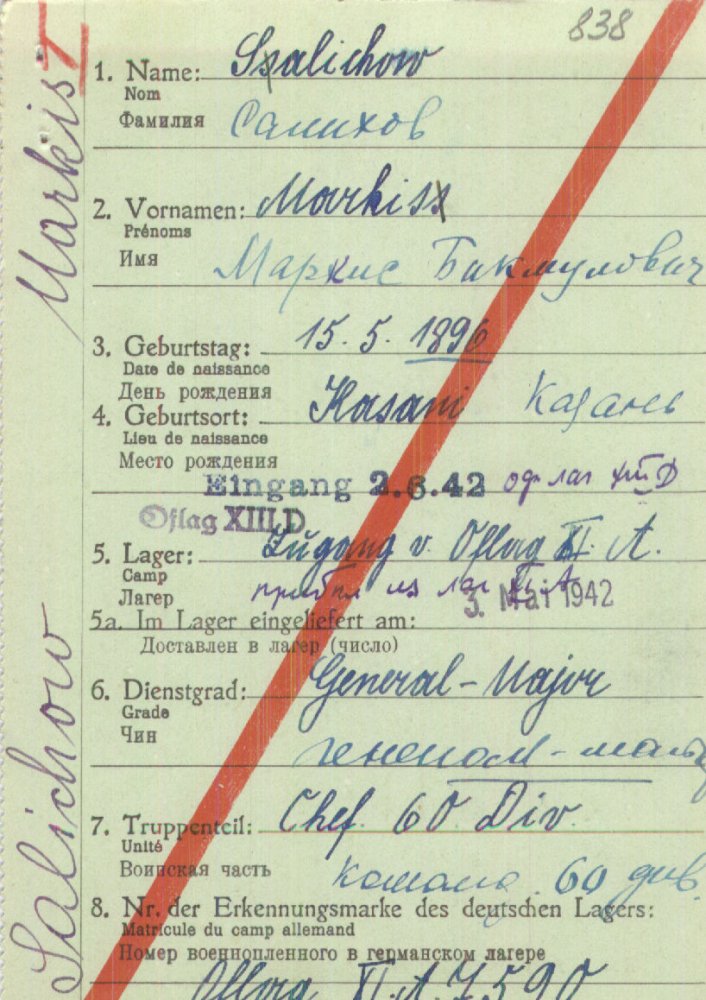 838
I
1. Name: Salichow
Nom
Фамилия Салихов
2. Vornamen: Markis
Prénoms
Имя Маркис Бикмулович
3. Geburtstag: 15. 5. 1896
Date de naissance
День рождения
4. Geburtsort: Kasani Казань
Lieu de naissance
Место рождения
Eingang 2.6.42 оф лаг XIII D
Oflag XIII D
5. Lager: Zugang v. Oflag XI. A.
Camp
Лагер прибыл из лаг XI A
3. Mai 1942
5a. Im Lager eingeliefert am:
Доставлен в лагер (число)
6. Dienstgrad: General-Major
Grade
Чин
7. Truppenteil: Chef. 60 Div.
Unité
Воинская часть команд. 60 див.
8. Nr. der Erkennungsmarke des deutschen Lagers:
Matricule du camp allemand
Номер военнопленного в германском лагере
Oflag XI. A. 7590
Salichow Markis